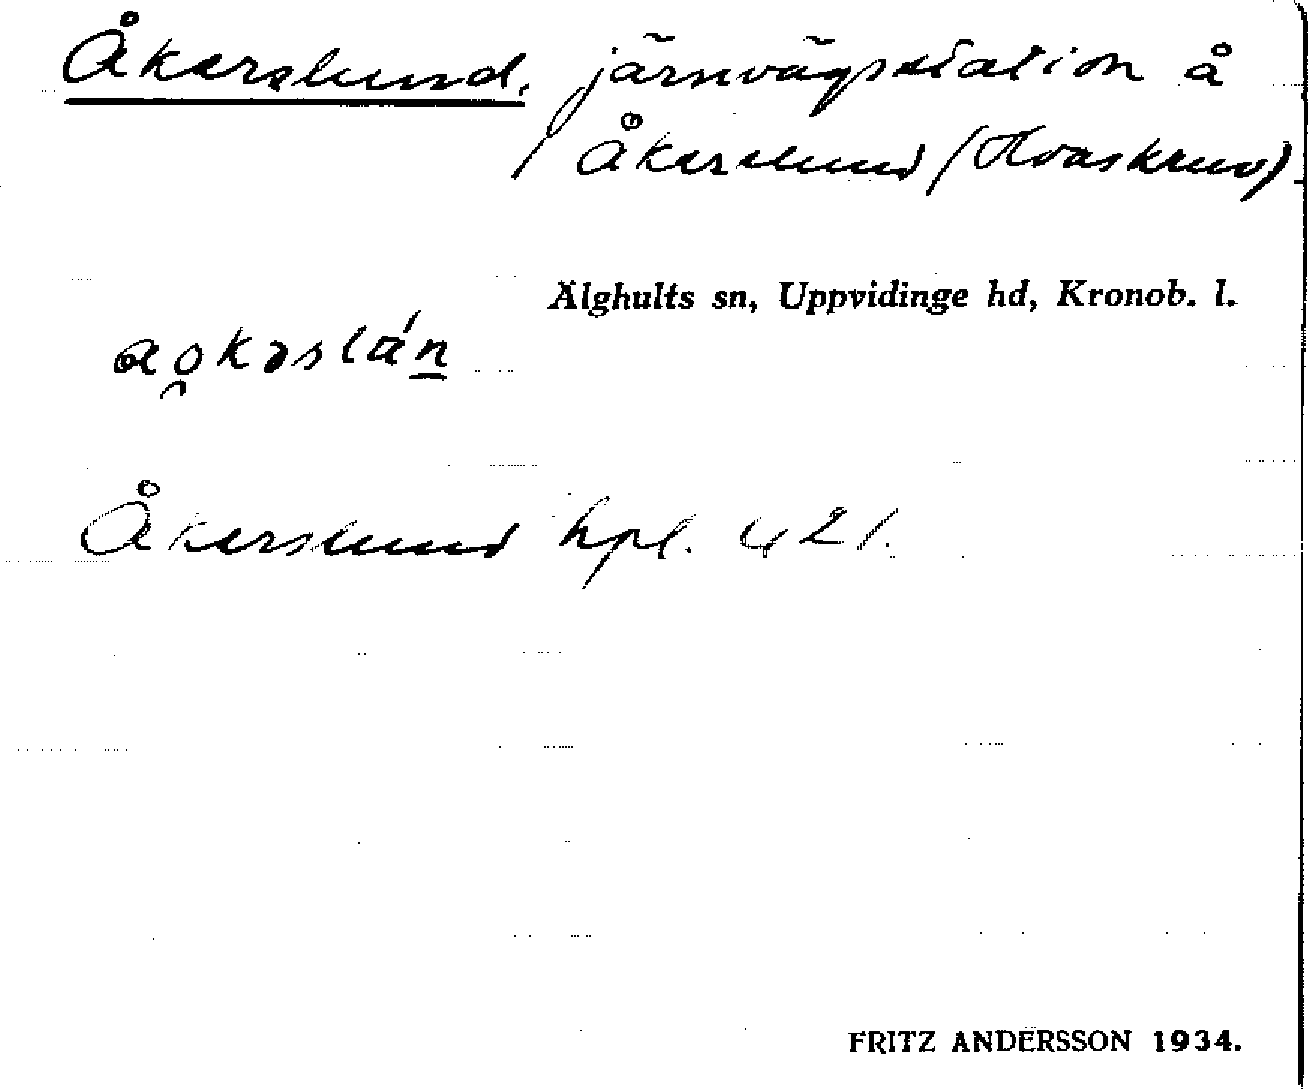 Åkerslund, järnvägsstation å
Åkerslund (Hvaskruv)
Älghults sn, Uppvidinge hd, Kronob. l.
Åkerslund hpl. 421.
FRITZ ANDERSSON 1934.